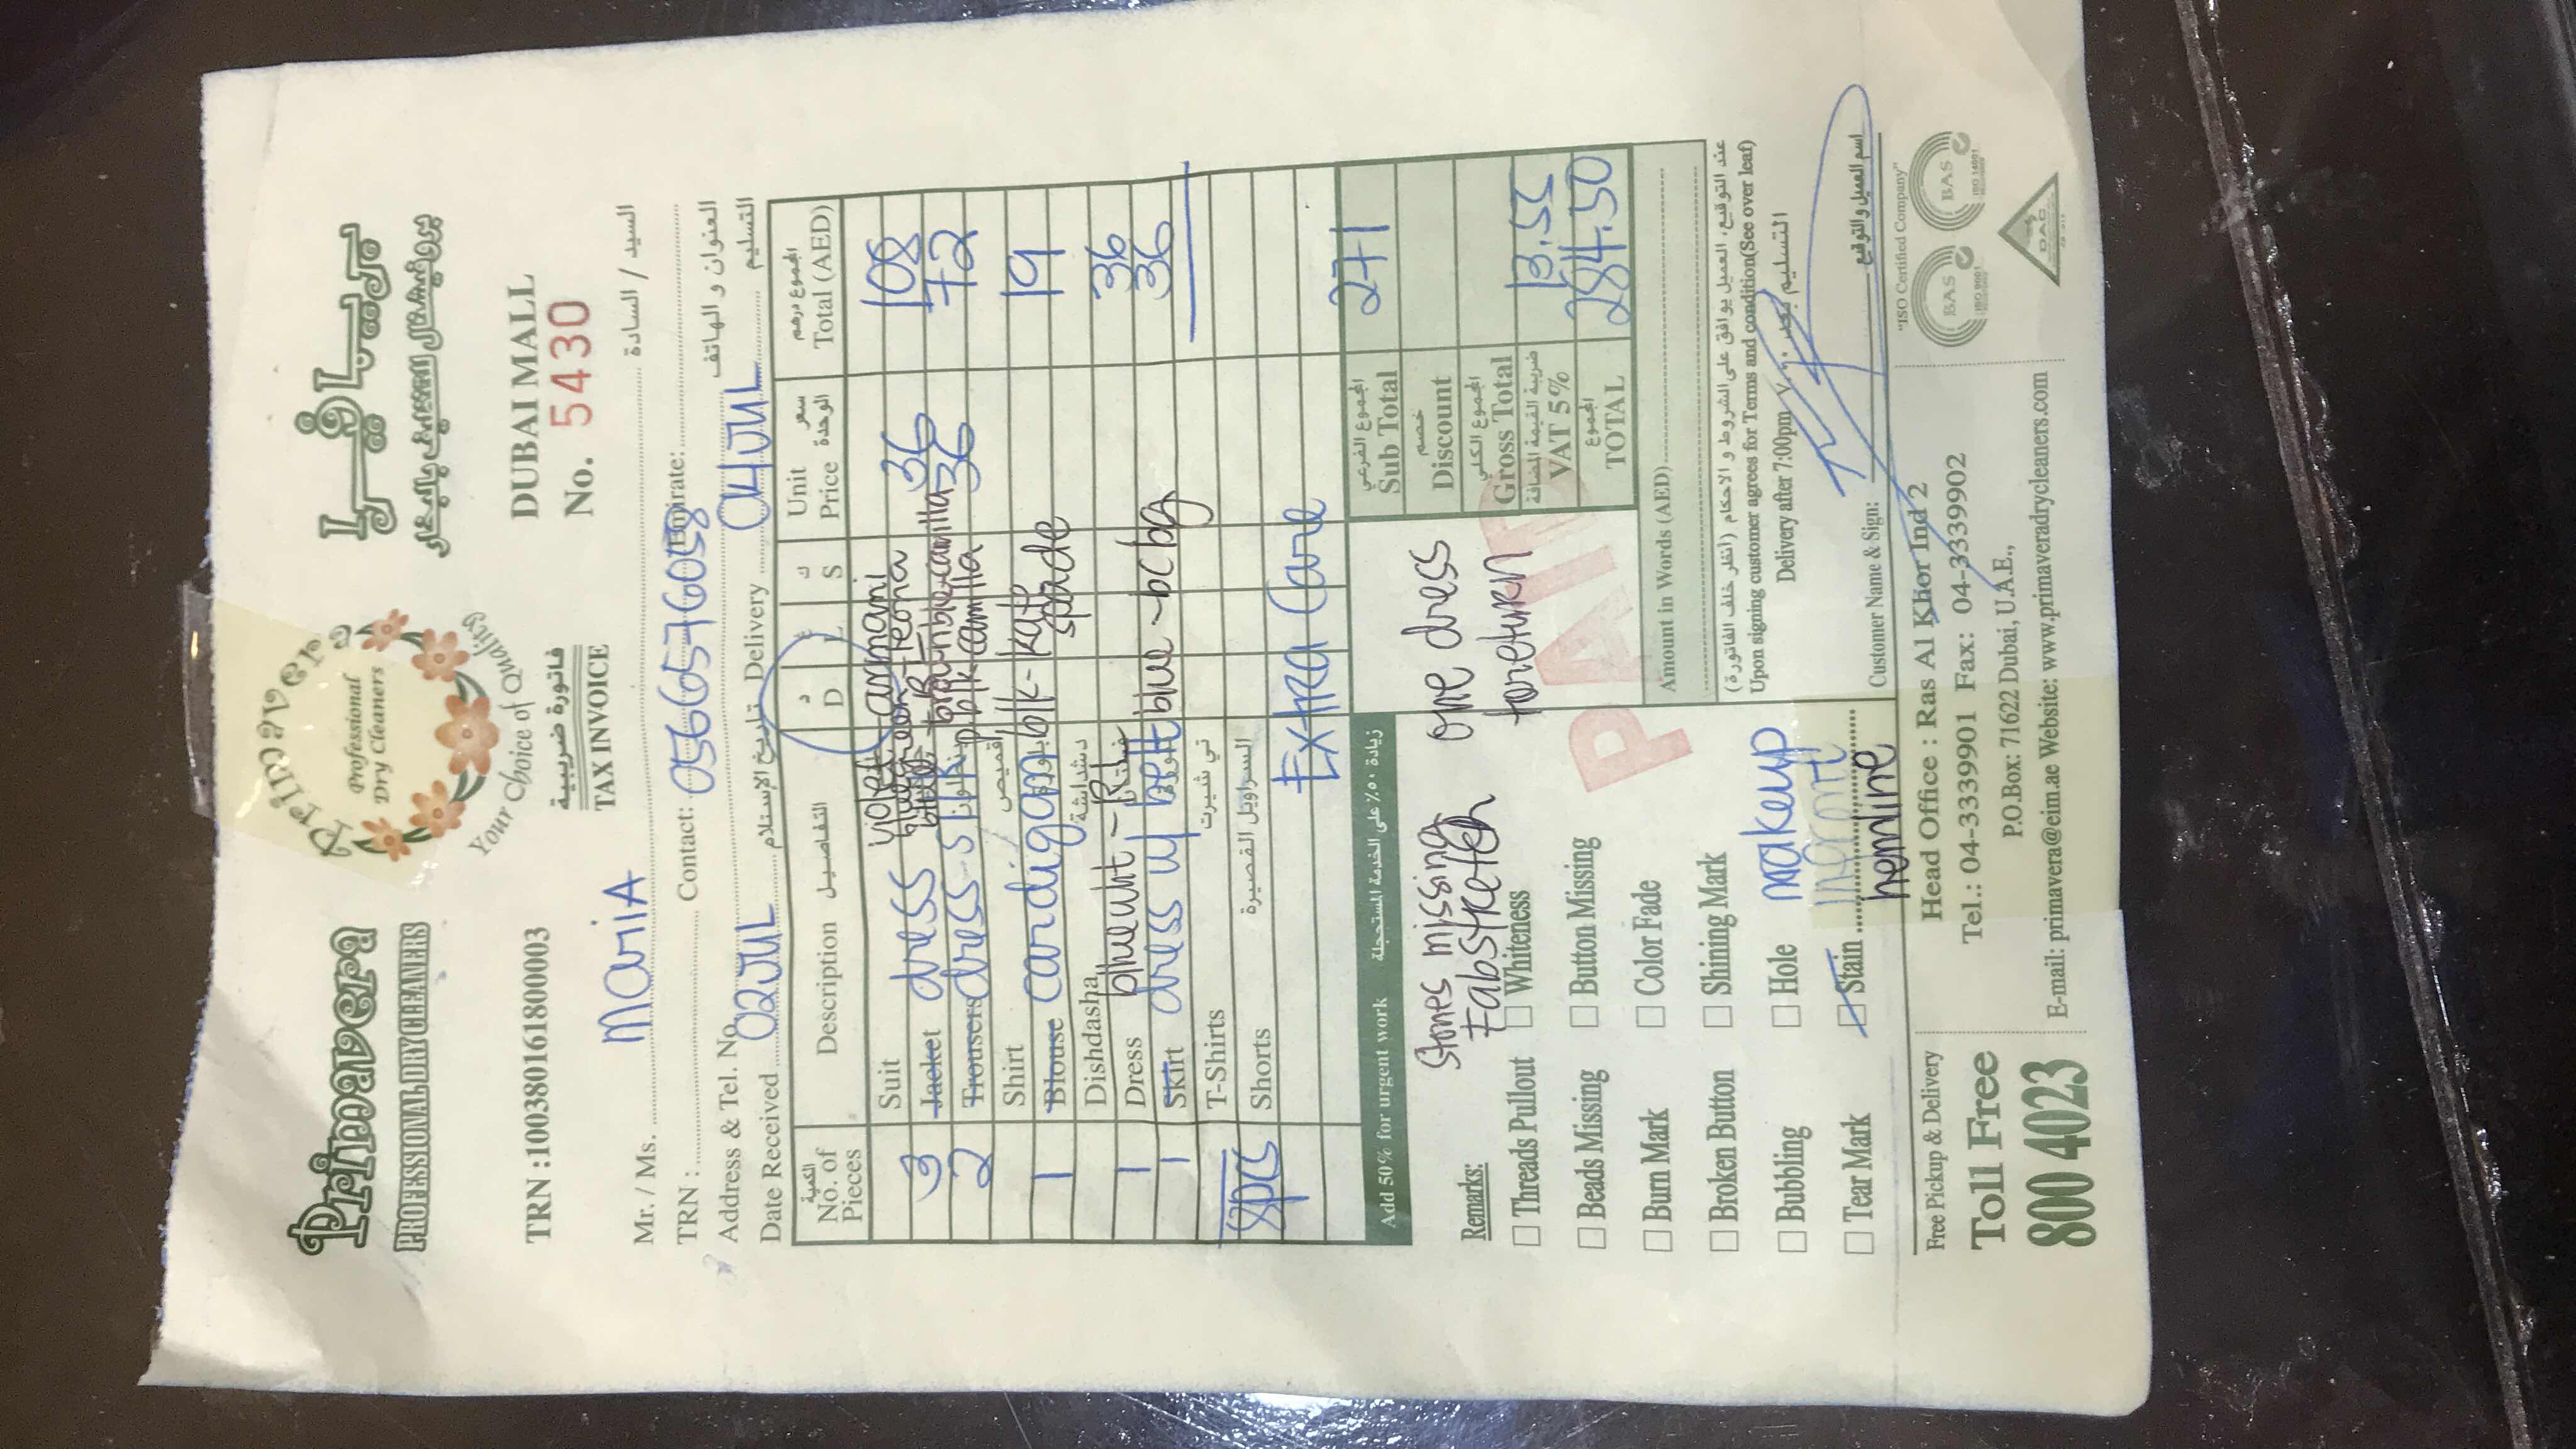 Primavera
PROFESSIONAL DRY CLEANERS
Primavera
Professional
Dry Cleaners
Your Choice of Quality
بريمافيرا
بروفيشنال للتنظيف بالبخار
TRN :100380161800003
فاتورة ضريبية
TAX INVOICE
DUBAI MALL
No. 5430
Mr. / Ms. MARIA السيد / السادة
TRN : Contact: 0566576058 Emirate:
Address & Tel. No. العنوان و الهاتف
Date Received 02 JUL تاريخ الإستلام Delivery 04 JUL التسليم
الكمية No. of Pieces Description التفاصيل د D غ L ك S Unit Price سعر الوحدة المجموع درهم Total (AED)
Suit violet - armani
3 Jacket dress bluegreen - teoha 36 108
brownblk-camilla
2 Trousers dress-silk p. blk camilla 36 72
Shirt قميص
1 Blouse cardigan blk-kate spade 19
Dishdasha دشداشة
1 Dress blue wht - RL 36
1 Skirt dress w/ belt blue - bcbg 36
T-Shirts تي شيرت
8pcs Shorts السراويل القصيرة
Extra Care
Add 50% for urgent work زيادة ٥٠٪ على الخدمة المستعجلة
المجموع الفرعي
Sub Total 271
خصم
Discount
المجموع الكلي
Gross Total
ضريبة القيمة المضافة
VAT 5% 13.55
المجموع
TOTAL 284.50
Stones missing
Remarks: Fabstretch
one dress
to return
PAID
Threads Pullout Whiteness
Beads Missing Button Missing
Burn Mark Color Fade
Broken Button Shining Mark
Bubbling Hole makeup
infront
Tear Mark Stain
hemline
Amount in Words (AED)
عند التوقيع، العميل يوافق على الشروط و الاحكام (أنظر خلف الفاتورة)
Upon signing customer agrees for Terms and condition(See over leaf)
Delivery after 7:00pm التسليم بعد ٧.٠٠
Customer Name & Sign: اسم العميل والتوقيع
Free Pickup & Delivery
Toll Free
800 4023
Head Office : Ras Al Khor Ind 2
Tel.: 04-3339901 Fax: 04-3339902
P.O.Box: 71622 Dubai, U.A.E.,
E-mail: primavera@eim.ae Website: www.primaveradrycleaners.com
"ISO Certified Company"
BAS
ISO 9001
BAS
ISO 14001
DAC